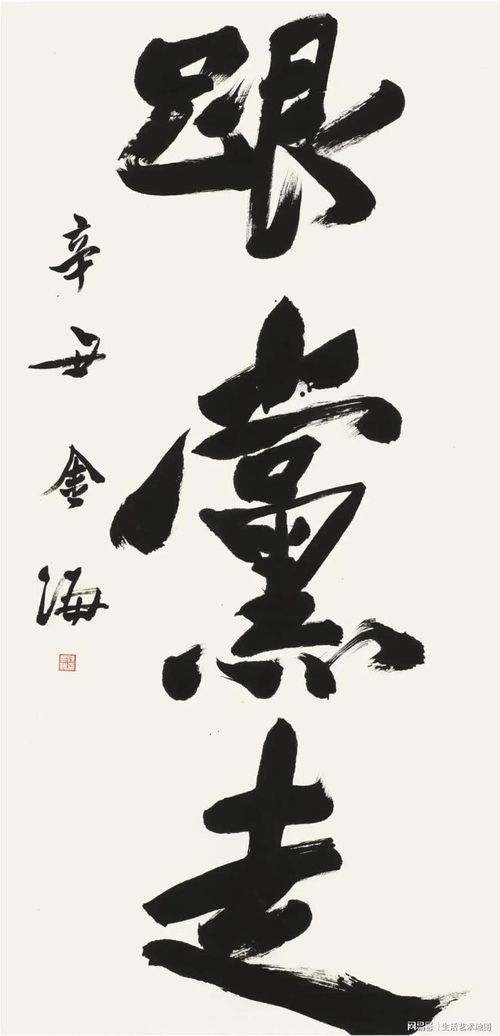 跟黨走
辛丑金海
网易号 | 生活艺术地图